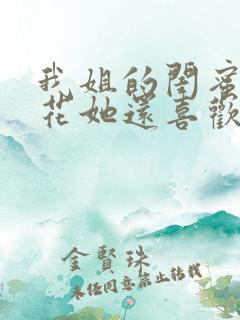 我姐的閨蜜
花她還喜歡
金賢珠
未经同意禁止转载